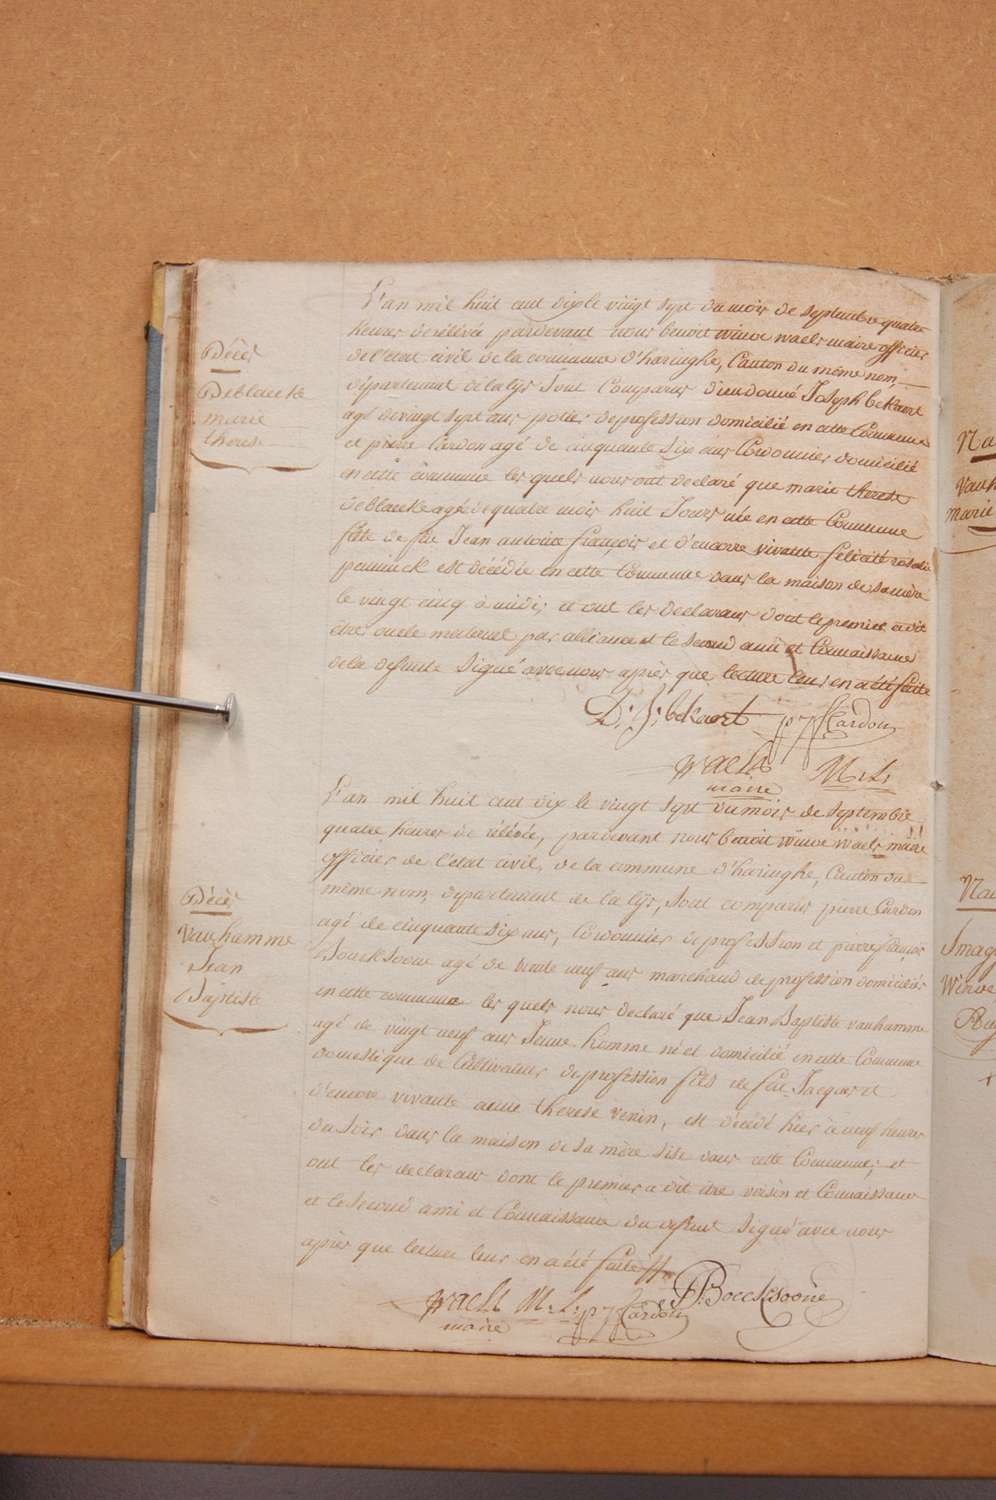 Décès
Deblaecke
marie
therese
L'an mil huit cent dix le vingt sept du mois de septembre quatre
heures de relévée pardevant nous benoit winoc waels maire officier
de l'état civil de la commune d'haringhe, Canton du même nom,
département de la lys sont Comparus dieudonné Joseph bekaert
agé de vingt sept ans potier de profession domicilié en cette Commune
et pierre Cardon agé de cinquante six ans Cordonnier domicilié
en cette commune les quels nous ont declaré que marie therese
deblaecke agée de quatre mois huit Jours née en cette Commune
fille de feu Jean antoine françois et d'encore vivante felicité rosalie
pannick est décédée en cette Commune dans la maison de sa mère
le vingt cinq à midi; et ont les declarans dont le premier a dit
être oncle maternel par alliance et le second ami et Connaissance
de la defunte signé avec nous après que lecture leur en a été faite
D. J. bekaert p j Cardon
waels M. L.
maire
Décès
Vanhamme
Jean
Baptiste
L'an mil huit cent dix le vingt sept du mois de septembre
quatre heures de relévée, pardevant nous benoit winoc waels maire
officier de l'état civil, de la commune d'haringhe, Canton du
même nom, département de la lys, sont comparus pierre Cardon
agé de cinquante six ans, Cordonnier de profession et pierre françois
Boecksoone agé de trente neuf ans marchand de profession domiciliés
en cette commune les quels nous declaré que Jean Baptiste vanhamme
agé de vingt neuf ans Jeune homme né et domicilié en cette Commune
domestique de Cultivateur de profession fils de feu Jacques et
d'encore vivante anne therese venin, est décédé hier à neuf heures
du soir dans la maison de sa mère sise dans cette Commune; et
ont les declarans dont le premier a dit être voisin et Connaissance
et le second ami et Connaissance du defunt signé avec nous
après que lecture leur en a été faite
waels M. L. p j Cardon P. Boecksoone
maire
Na
vanh
Marie
Nai
Imag
Winoc